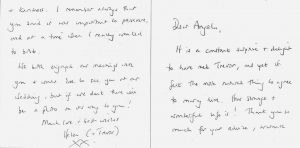 Dear Angela,
It is a constant surprise & delight
to have met Trevor, and yet it
felt the most natural thing to agree
to marry him. How strange &
wonderful life is! Thank you so
much for your advice, 
& kindness. I remember always that
you said it was important to persevere,
and at a time when I really wanted
to bolt.
We both enjoyed our meetings with
you & would love to see you at our
wedding, but if we don't there will
be a photo on its way to you!
Much love & best wishes
Helen (& Trevor)
XX